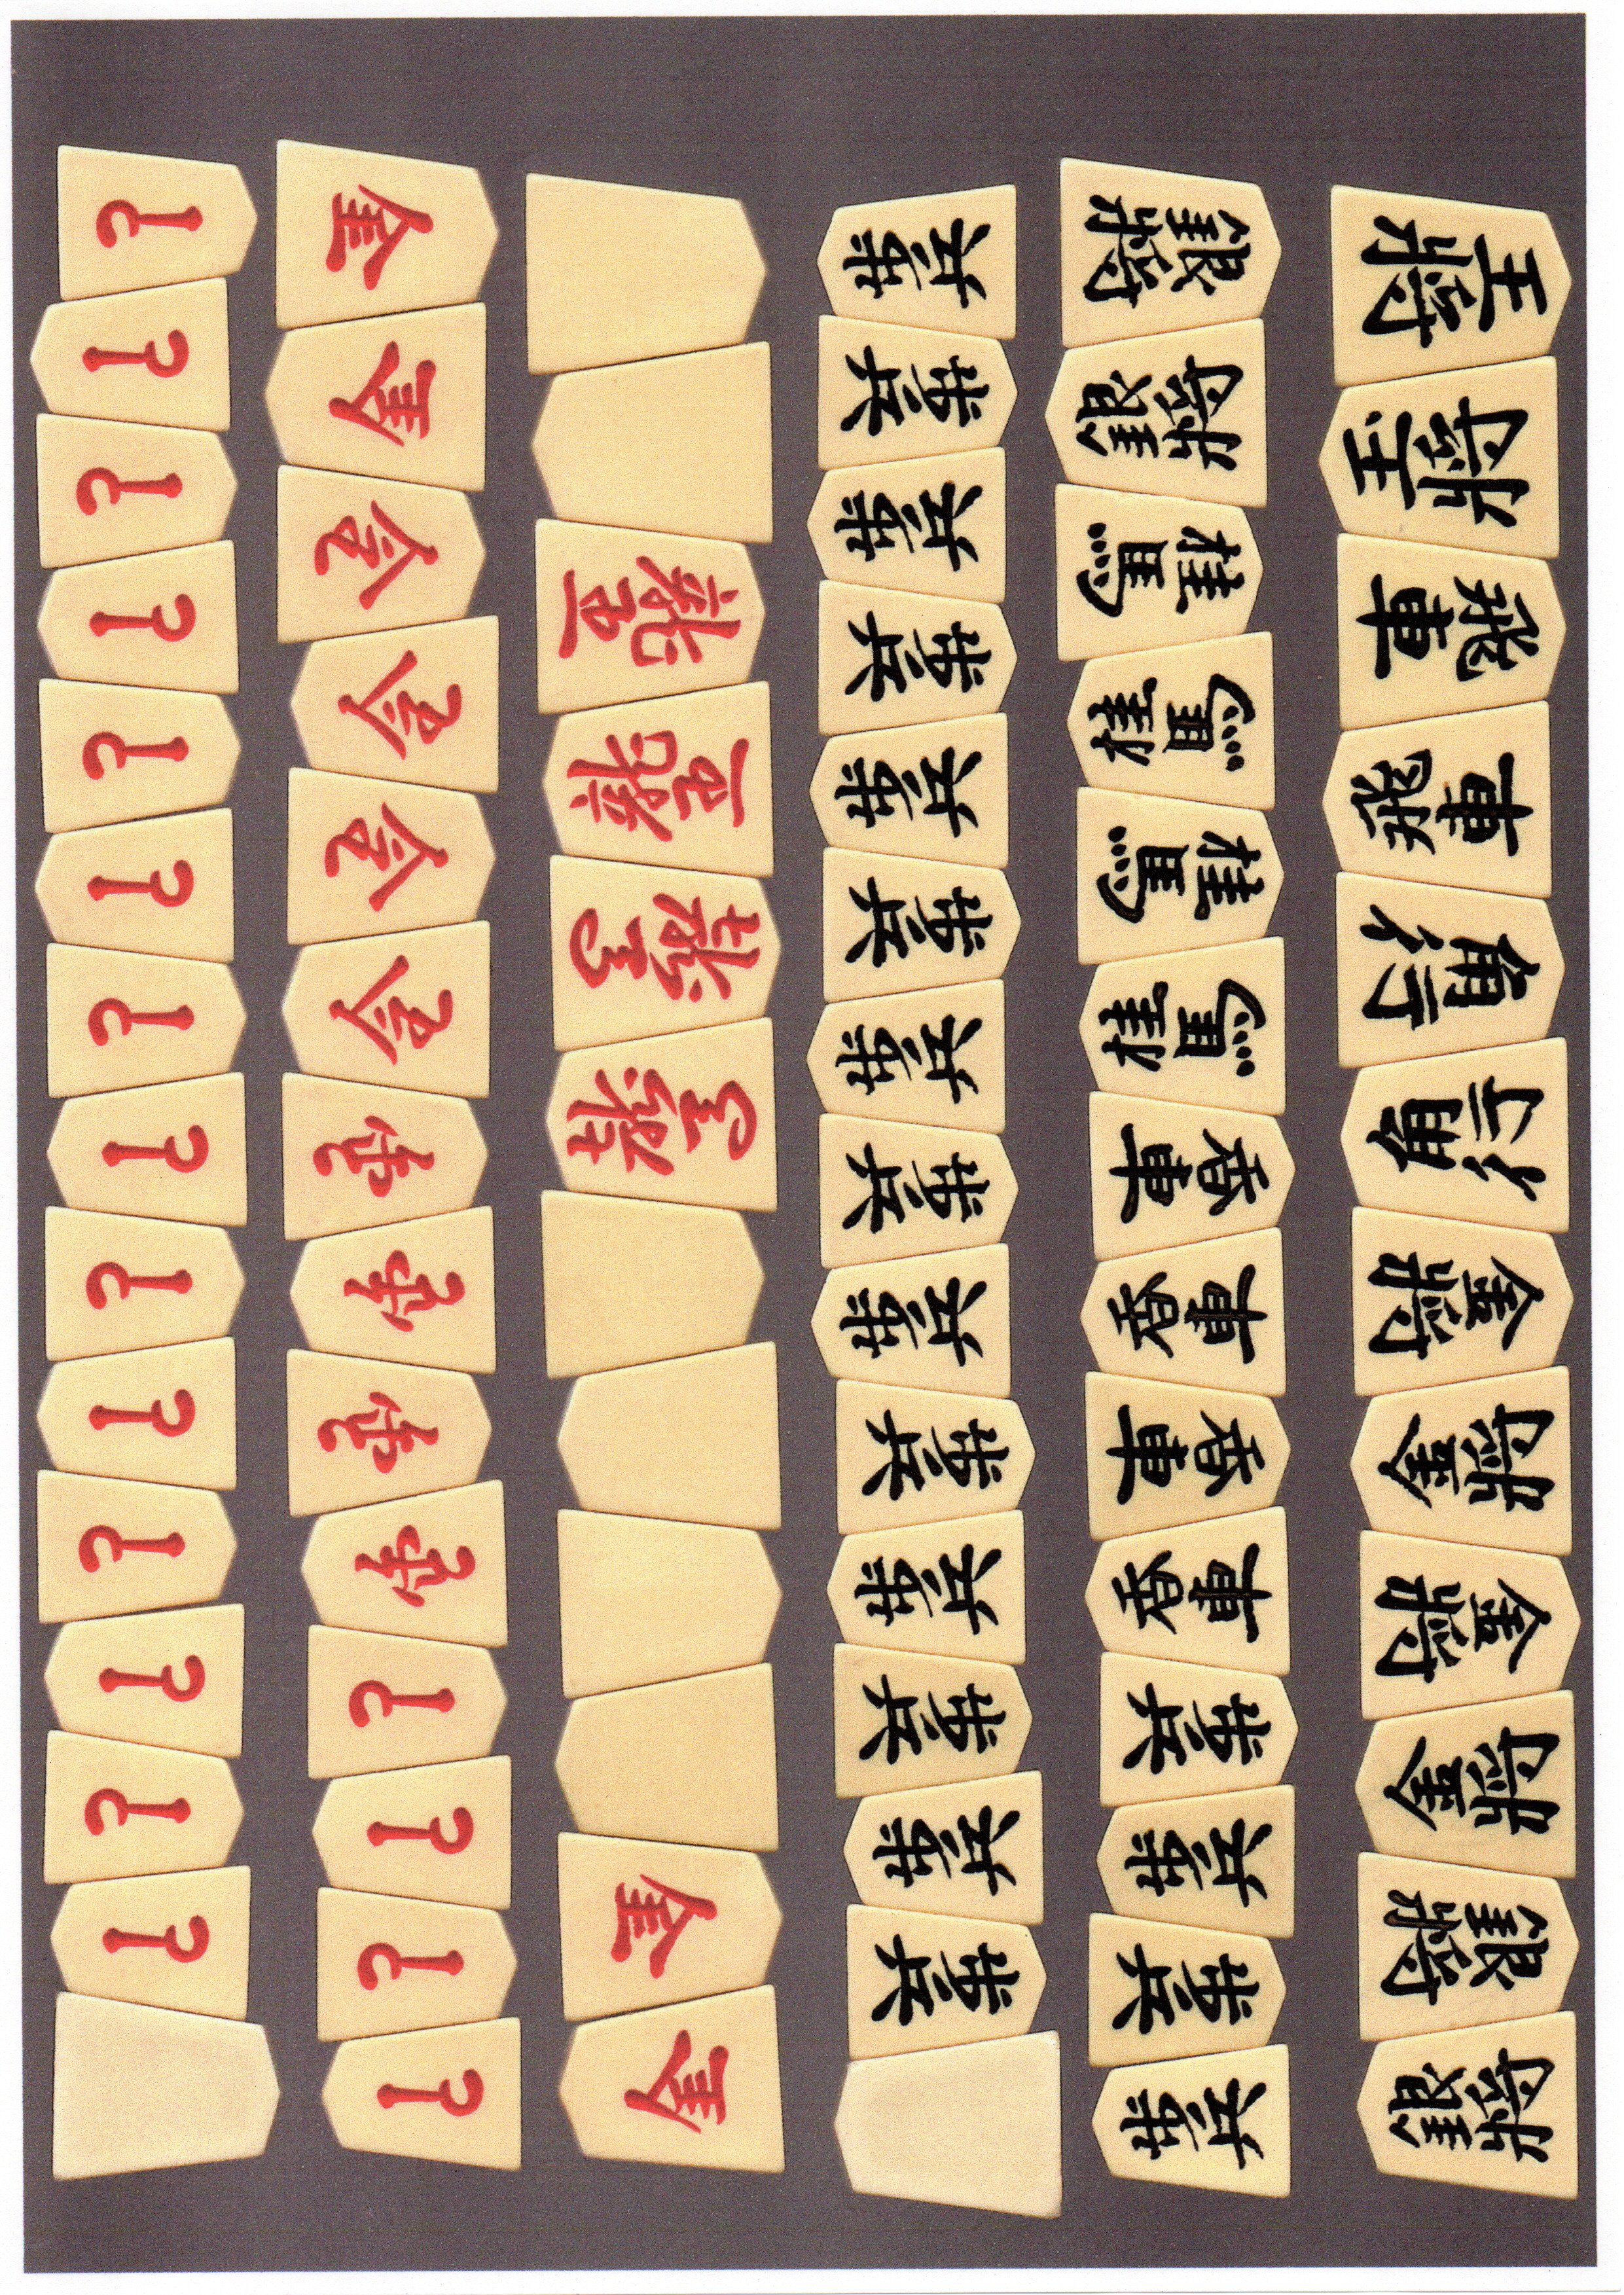 王将 玉将 飛車 飛車 角行 角行 金将 金将 金将 金将 銀将 銀将
銀将 銀将 桂馬 桂馬 桂馬 桂馬 香車 香車 香車 香車 歩兵 歩兵 歩兵 歩兵
歩兵 歩兵 歩兵 歩兵 歩兵 歩兵 歩兵 歩兵 歩兵 歩兵 歩兵 歩兵 歩兵 歩兵
龍王 龍王 龍馬 龍馬 金 金
金 金 と と と と
と と と と と と と と と と と と と と